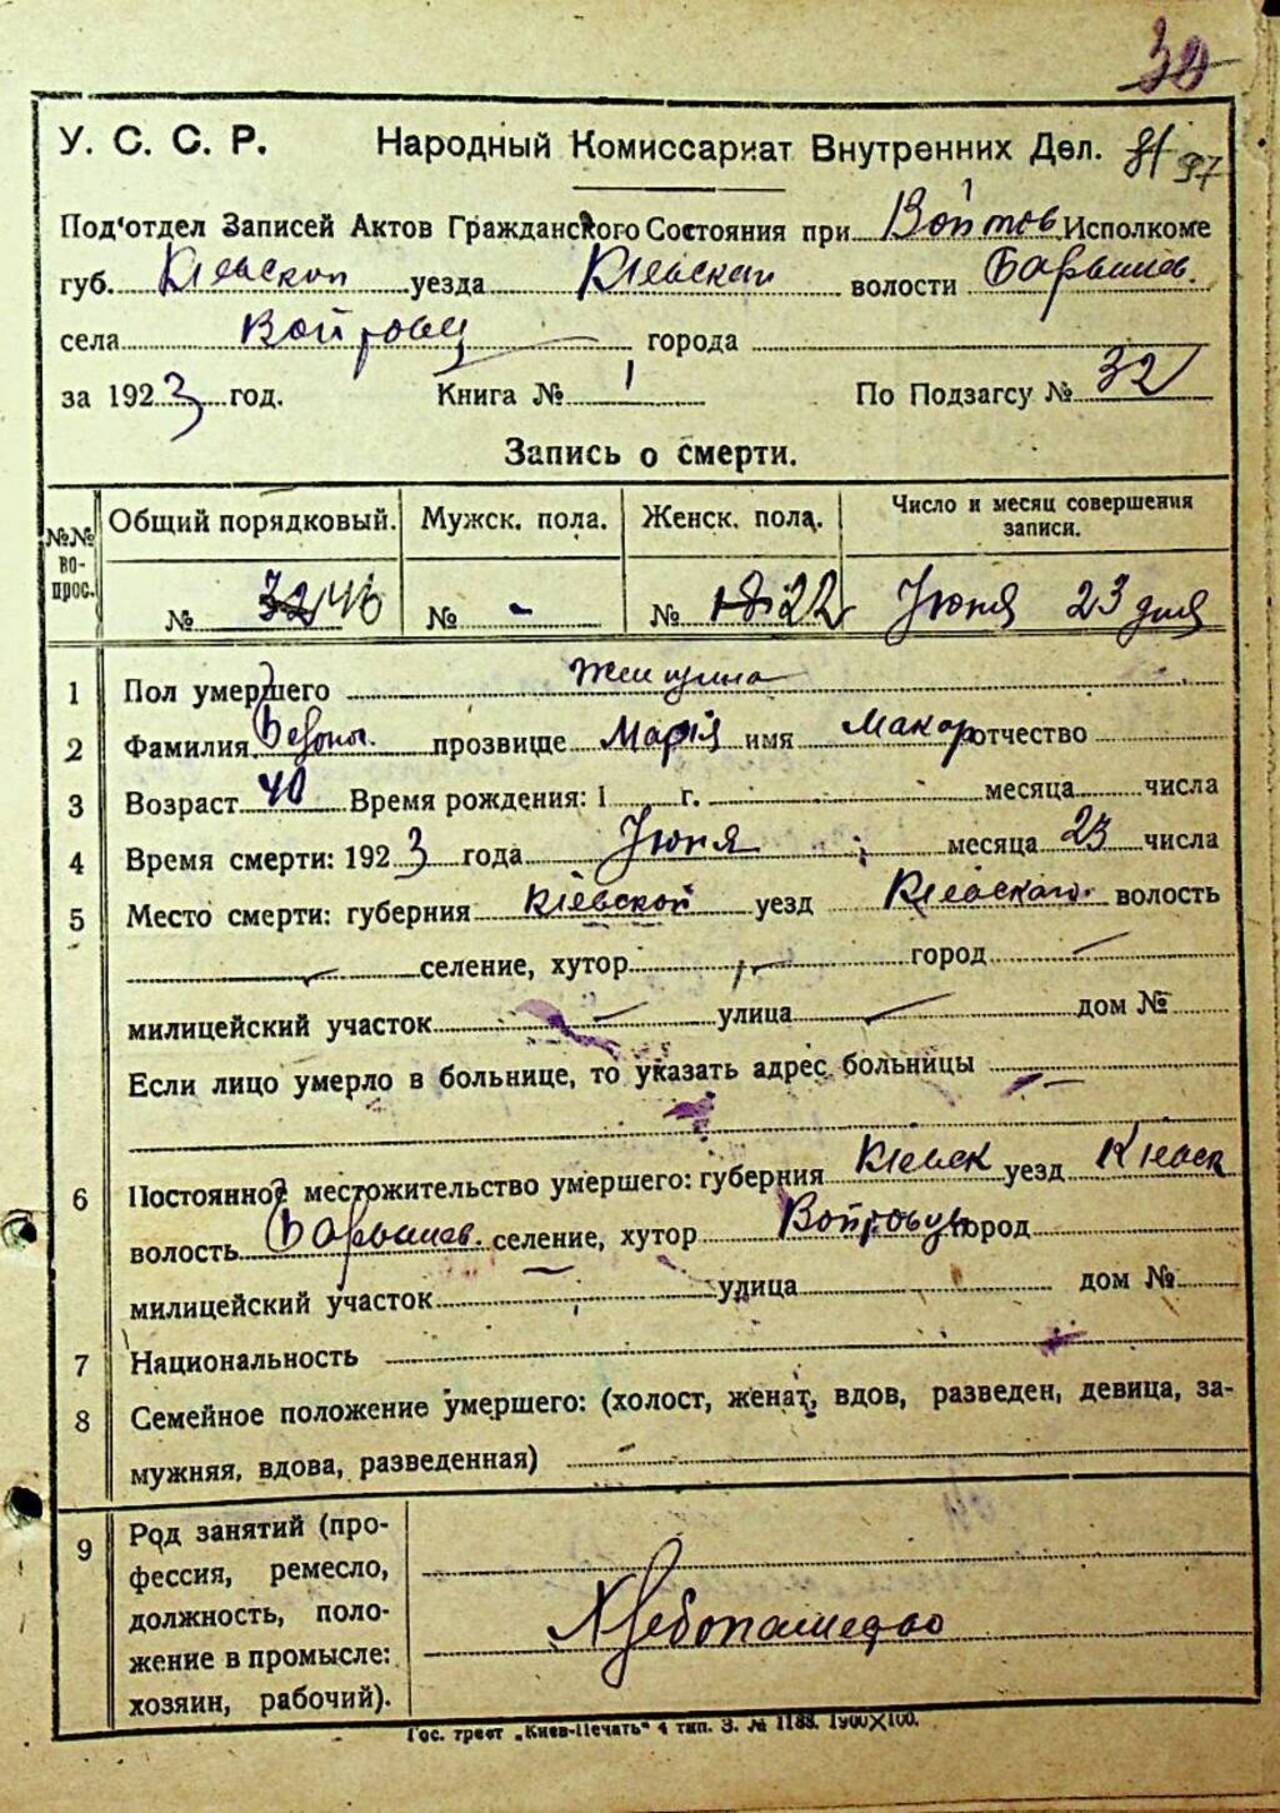 30
У. С. С. Р. Народный Комиссариат Внутренних Дел. 81 97
Под'отдел Записей Актов Гражданского Состояния при Войтов Исполкоме
губ. Кіевской уезда Кіевскаго волости Барышев.
села Войтовцы города
за 1923 год. Книга № 1 По Подзагсу № 32
Запись о смерти.
№№ вопрос. Общий порядковый. Мужск. пола. Женск. пола. Число и месяц совершения
записи.
№ 32 46 № - № 18 22 Июня 23 дня
1 Пол умершего Женщина
2 Фамилия прозвище Марія имя Макар отчество
3 Возраст 40 Время рождения: 1 г. месяца числа
4 Время смерти: 1923 года Июня месяца 23 числа
5 Место смерти: губерния Кіевской уезд Кіевскаго волость
селение, хутор город
милицейский участок улица дом №
Если лицо умерло в больнице, то указать адрес больницы
6 Постоянное местожительство умершего: губерния Кіевск уезд Кіевск
волость Барышев. селение, хутор Войтовцы город
милицейский участок улица дом №
7 Национальность
8 Семейное положение умершего: (холост, женат, вдов, разведен, девица, за-
мужняя, вдова, разведенная)
9 Род занятий (про-
фессия, ремесло,
должность, поло-
жение в промысле:
хозяин, рабочий).
Хлебопашество
Гос. трест „Киев-Печать" 4 тип. З. № 1188. 1900×100.